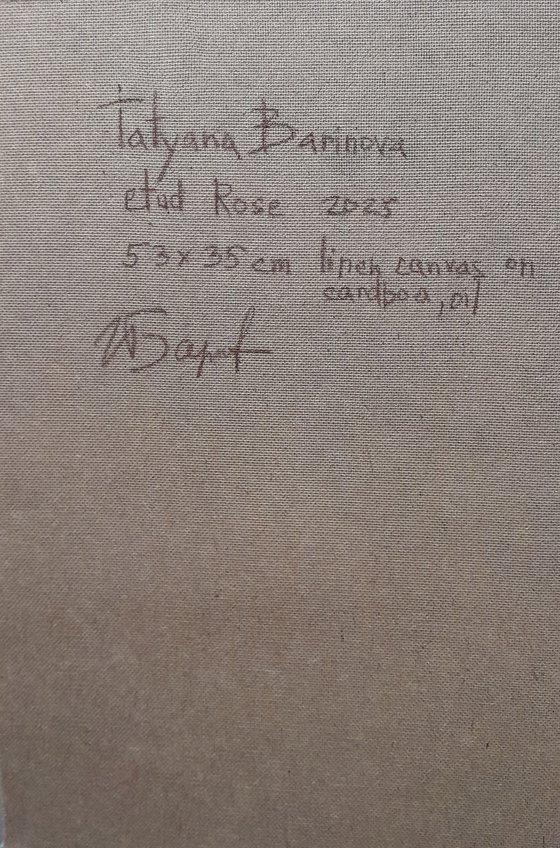 Tatyana Barinova
etud Rose 2025
53x35 cm linen canvas on
cardboa, oil